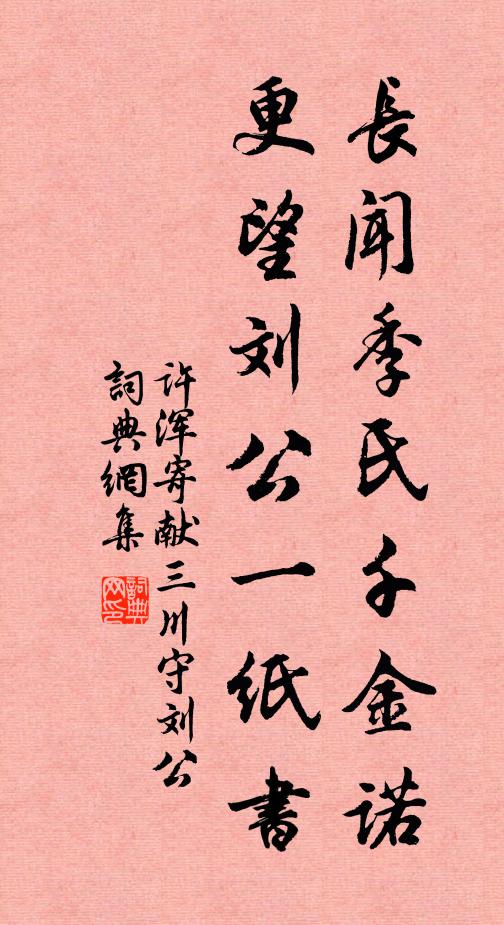 長闻季氏千金诺
更望刘公一纸書
许浑寄献三川守刘公
詞典網集
詞典網印